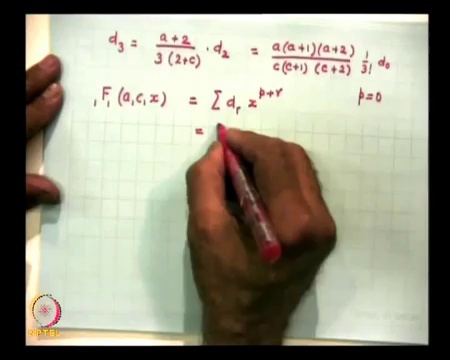 d₃ = (a+2)/(3(2+c)) · d₂ = (a(a+1)(a+2))/(c(c+1)(c+2)) 1/3! d₀
₁F₁(a,c,x) = Σ dᵣ x^(p+r) p=0
=
NPTEL